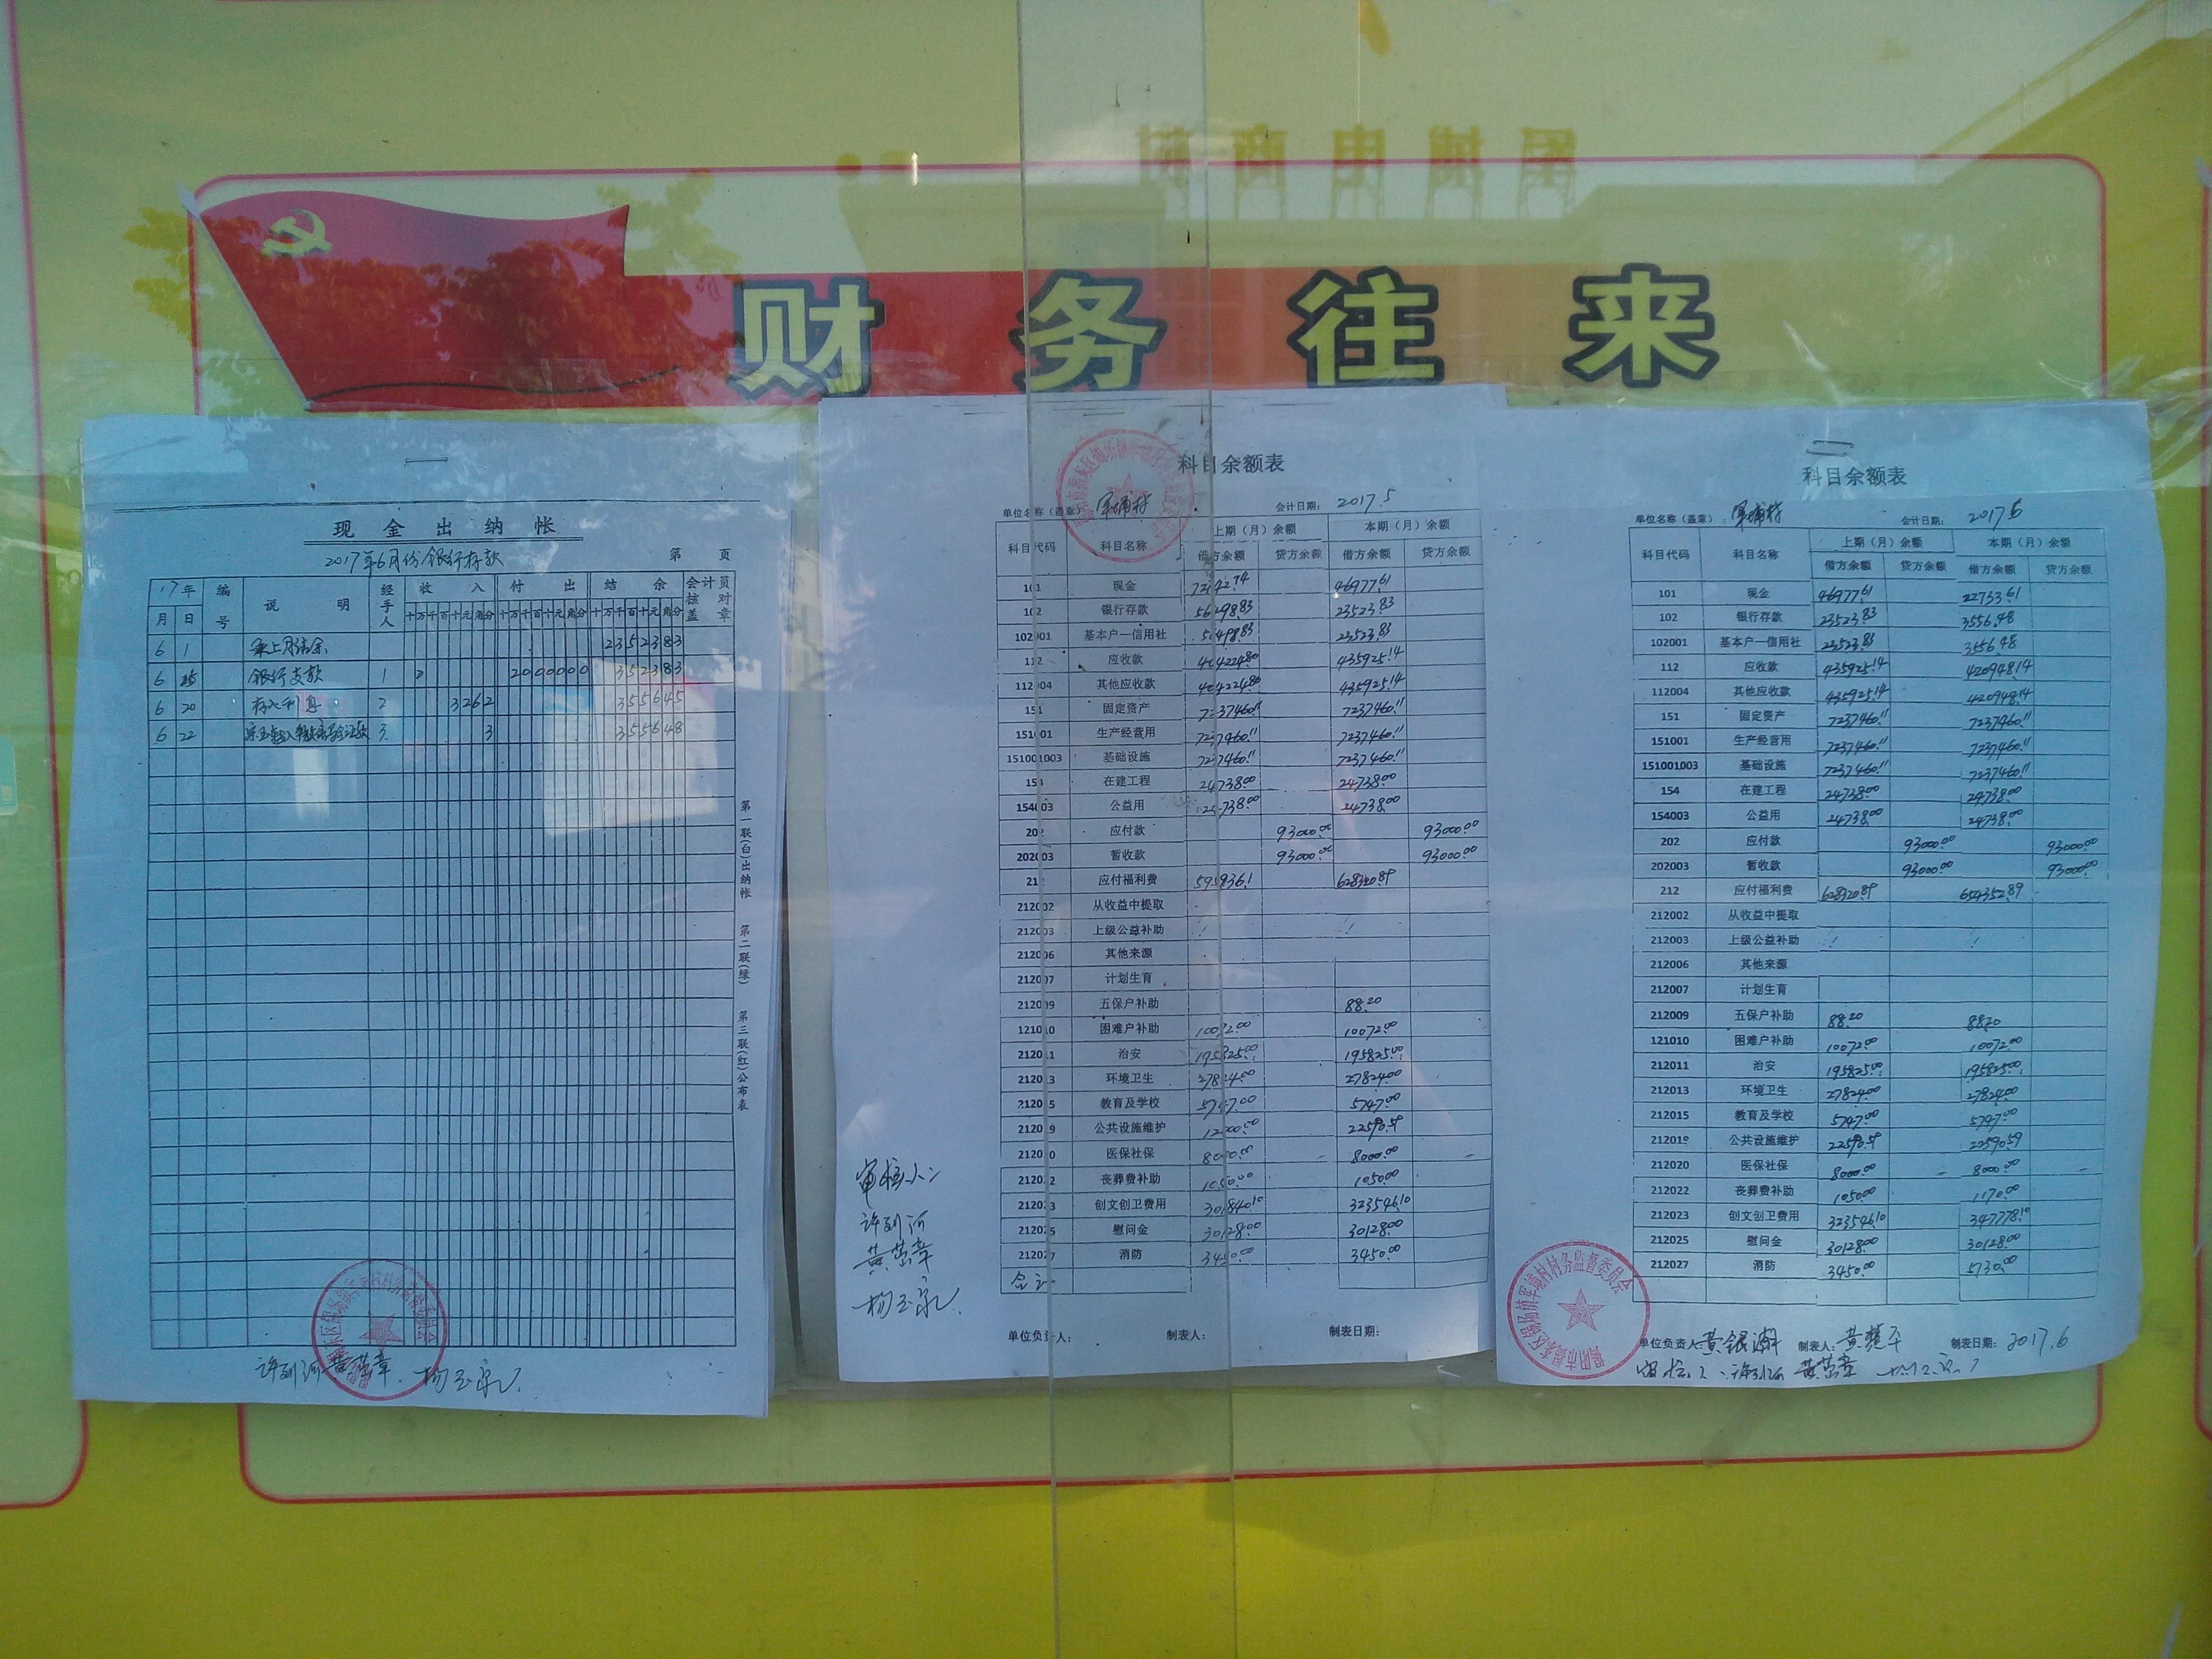 军埔电商村
财务往来
现金出纳帐
2017年6月份银行存款
第 页
17年 编号 说明 经手人 收入 付出 结余 会计员核对盖章
月 日 十万千百十元角分 十万千百十元角分 十万千百十元角分
6 1 承上月结余 2352383
6 15 银行支款 1 2000000 352383
6 20 存入利息 2 3262 355645
6 22 3 3 355648
第一联(白)出纳帐 第二联(绿) 第三联(红)公布表
许列河 黄茁章
科目余额表
单位名称（盖章）： 军埔村 会计日期： 2017.5
科目代码 科目名称 上期（月）余额 本期（月）余额
借方余额 贷方余额 借方余额 贷方余额
101 现金 46977.61
102 银行存款 23523.83
102001 基本户一信用社 23523.83
112 应收款 435925.14
112004 其他应收款 435925.14
151 固定资产 7237460.11 7237460.11
151001 生产经营用 7237460.11 7237460.11
151001003 基础设施 7237460.11 7237460.11
154 在建工程 24738.00 24738.00
154003 公益用 24738.00 24738.00
202 应付款 93000.00 93000.00
202003 暂收款 93000.00 93000.00
212 应付福利费 628320.89
212002 从收益中提取
212003 上级公益补助
212006 其他来源
212007 计划生育
212009 五保户补助 88.20
121010 困难户补助 10072.00 10072.00
212011 治安 195825.00 195825.00
212013 环境卫生 27824.00 27824.00
212015 教育及学校 5747.00 5747.00
212019 公共设施维护 22590.59
212020 医保社保 8000.00 8000.00
212022 丧葬费补助 1050.00 1050.00
212023 创文创卫费用 323546.10
212025 慰问金 30128.00 30128.00
212027 消防 3450.00 3450.00
合计
单位负责人： 制表人： 制表日期：
审核人：
许列河
黄茁章
科目余额表
单位名称（盖章）： 军埔村 会计日期： 2017.6
科目代码 科目名称 上期（月）余额 本期（月）余额
借方余额 贷方余额 借方余额 贷方余额
101 现金 46977.61 22733.61
102 银行存款 23523.83 3556.48
102001 基本户一信用社 23523.83 3556.48
112 应收款 435925.14 420948.14
112004 其他应收款 435925.14 420948.14
151 固定资产 7237460.11 7237460.11
151001 生产经营用 7237460.11 7237460.11
151001003 基础设施 7237460.11 7237460.11
154 在建工程 24738.00 24738.00
154003 公益用 24738.00 24738.00
202 应付款 93000.00 93000.00
202003 暂收款 93000.00 93000.00
212 应付福利费 628320.89 654352.89
212002 从收益中提取
212003 上级公益补助
212006 其他来源
212007 计划生育
212009 五保户补助 88.20 88.20
121010 困难户补助 10072.00 10072.00
212011 治安 195825.00 195825.00
212013 环境卫生 27824.00 27824.00
212015 教育及学校 5747.00 5747.00
212019 公共设施维护 22590.59 22590.59
212020 医保社保 8000.00 8000.00
212022 丧葬费补助 1050.00 1170.00
212023 创文创卫费用 323546.10 347778.10
212025 慰问金 30128.00 30128.00
212027 消防 3450.00 5730.00
揭阳市揭东区锡场镇军埔村村务监督委员会
单位负责人： 制表人： 制表日期： 2017.6
审核人：许列河 黄茁章